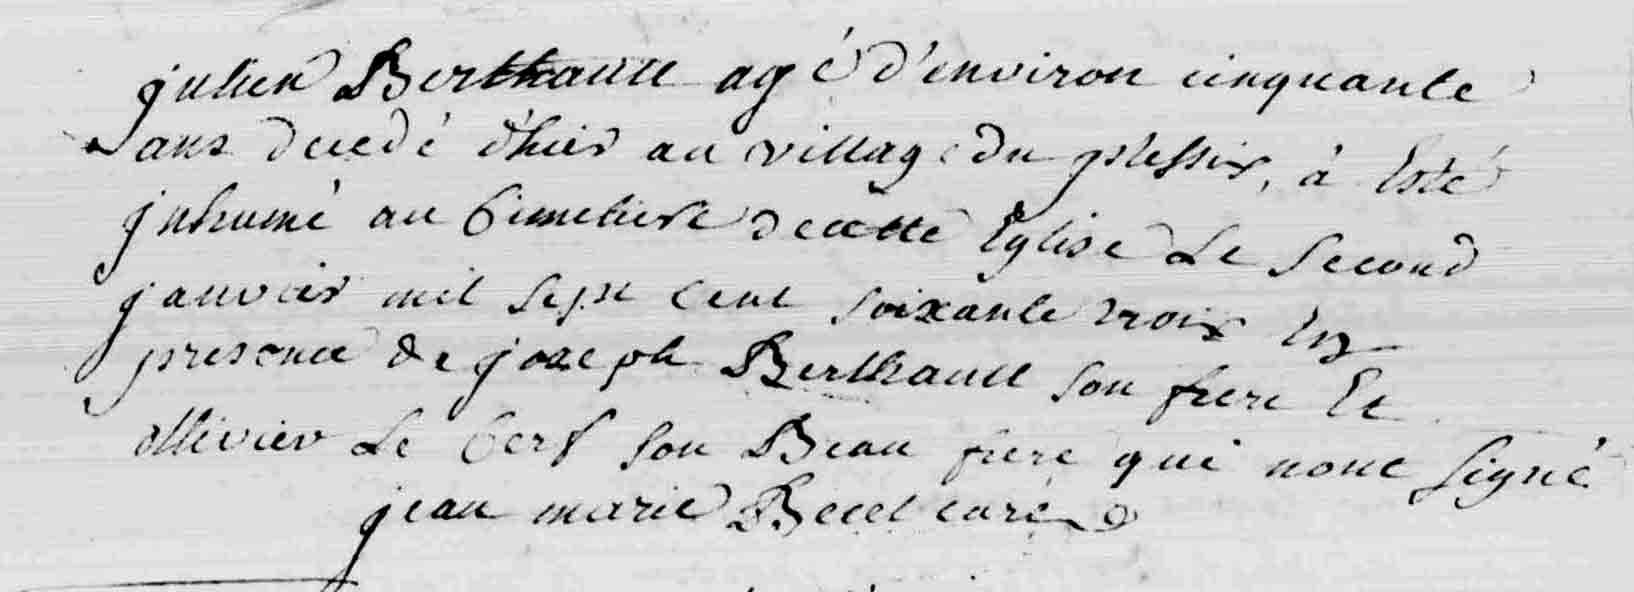 julien Berthault agé d'environ cinquante
ans decedé d'hier au village du plessix, à Esté
jnhumé au Cimetiere de cette Eglise Le second
janvier mil sept cent soixante trois En
presence de joseph Berthault son frere Et
ollivier Le Cerf son Beau frere qui nont signé
jean marie Becel curé